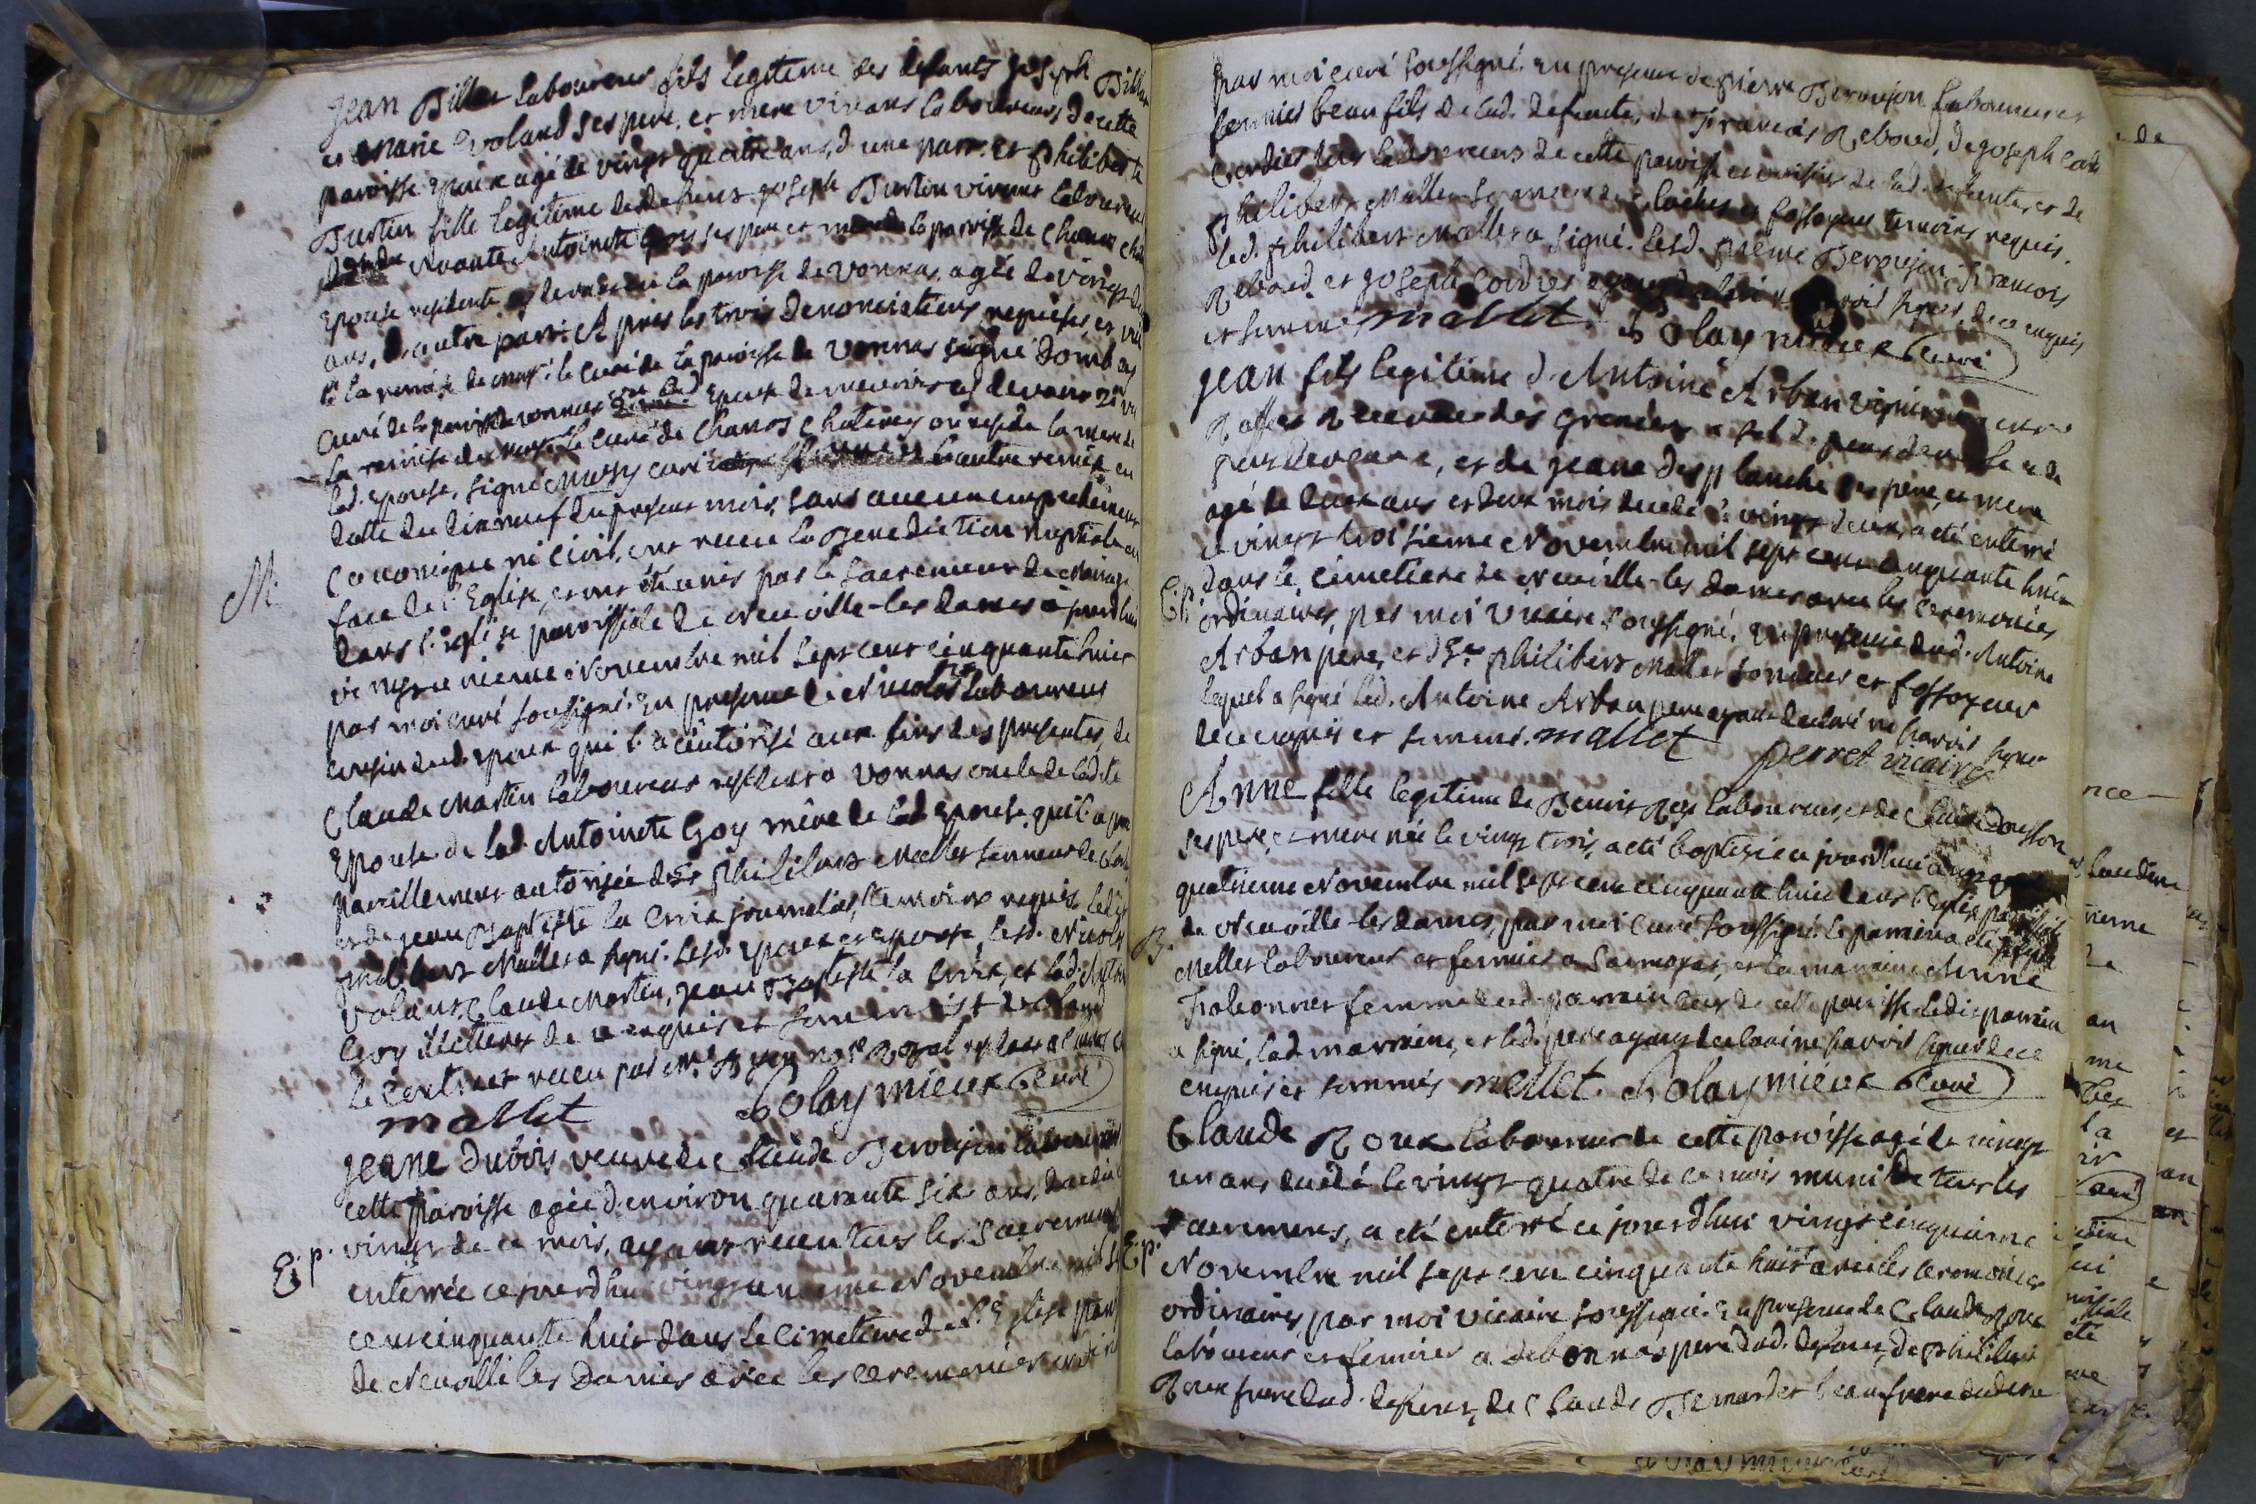 Jean Billet laboureur fils legitime des defunts Joseph Billet
et Marie Voland ses pere et mere vivans laboureurs de cette
paroisse Epoux agé de vingt quatre ans, d'une part. et philiberte
Burtin fille legitime de defunt Joseph Burtin vivant laboureur
vivante Antoinete Goy ses pere et mere de la paroisse de Chanos
Epouse residente la paroisse de Vonnas, agée de vingt
ans, d'autre part. Apres les trois denonciations requises, et vû
la remise de Mess. le curé de la paroisse de Vonnas signé
curé de la paroisse de Vonnas Epoux de
la remise de Mess. le curé de Chanos Chatenay ou reside la mere de
lad. Epouse, signé curé l'autre remise en
datte du dix neuf du present mois, sans aucun empechement
Canonique ni Civil, ont receu la Benediction nuptiale en
M.
face de l'Eglise, et ont été unis par le sacrement de Mariage
dans l'Eglise paroissiale de Neuville-les-dames aujourdhui
vingt unieme Novembre mil sept cent cinquante huit
par moi curé soussigné. En presence de Nicolas laboureur
cousin dud. Epoux qui l'a autorisé aux fins des presentes, de
Claude Martin laboureur resident a Vonnas oncle de ladite
Epouse de lad. Antoinete Goy mère de lad. Epouse qui l'a
pareillement autorisée de Sr philibert Mallet sonneur de
et de Jean Baptiste la Croix journalier, temoins requis led. Sr
philibert Mallet a signé. Lesd. Epoux et Epouse, led. Nicolas
Voland, Claude Martin, Jean Baptiste la Croix, et lad. Antoinete
Goy illetterés de ce enquis et sommés
le Contract receu par Me. Royal
mallet Bolaymieux Curé
Jeane Dubois veuve de Claude Beroujon laboureur
cette Paroisse agée d'environ quarante six ans, decedée
E. p. vingt de ce mois, ayant receu tous les Sacremens
enterrée ce jourdhui vingt unieme Novembre mil
cent cinquante huit dans le Cimetiere de l'Eglise
de Neuville les Dames avec les ceremonies
par moi curé soussigné. En presence de pierre Beroujon laboureur et
fermier beau fils de lad. defunte, de François Reboud, de Joseph
Cordier tous laboureurs de cette paroisse et voisins de lad. defunte, et de
philibert Mallet sonneur de cloches et fossoyeur temoins requis.
led. philibert Mallet a signé. Lesd. pierre Beroujon, François
Reboud et Joseph Cordier ayant signer, de ce enquis
et sommés mallet. Bolaymieux Curé
Jean fils legitime d'Antoine Arban vigneron
des greniers a sel
, et de Jeane Desplanche ses père et mere
agé de deux ans et deux mois decedé le vingt deux, a été enterré
ce vingt troisieme Novembre mil sept cent cinquante huit
E. p. dans le Cimetiere de Neuville-les dames avec les ceremonies
ordinaires, par moi Vicaire soussigné. En presence dud. Antoine
Arban pere, et de Sr. philibert Mallet sonneur et fossoyeur
lequel a signé led. Antoine Arban pere ayant declaré ne savoir signer
de ce enquis et sommé. mallet perret vicaire
Anne fille legitime de Benoit Rey laboureur, et de Claudine
ses pere, et mere née le vingt trois, a été baptisée ce jourdhui vingt
quatrieme Novembre mil sept cent cinquante huit dans l'Eglise
B. de Neuville-les dames, par moi Curé soussigné. le parrain a été Joseph
Mellet laboureur et fermier a Samoyas, et la marraine Anne
femme dud. parrain tous de cette paroisse ledit parrain
a signé, lad. marraine, et led. pere ayant declaré ne savoir signer de ce
enquis et sommés mellet. Bolaymieux Curé
Claude Roux laboureur de cette paroisse agé de vingt
un ans decedé le vingt quatre de ce mois muni de tous les
sacremens, a eté enterré ce jourdhui vingt cinquieme
E. p. Novembre mil sept cent cinquante huit avec les ceremonies
ordinaires, par moi Vicaire soussigné. En presence de Claude Roux
laboureur et fermier a pere dud. defunt, de Philibert
Roux frere dud. defunt, de Claude Bernardet beaufrere dudit